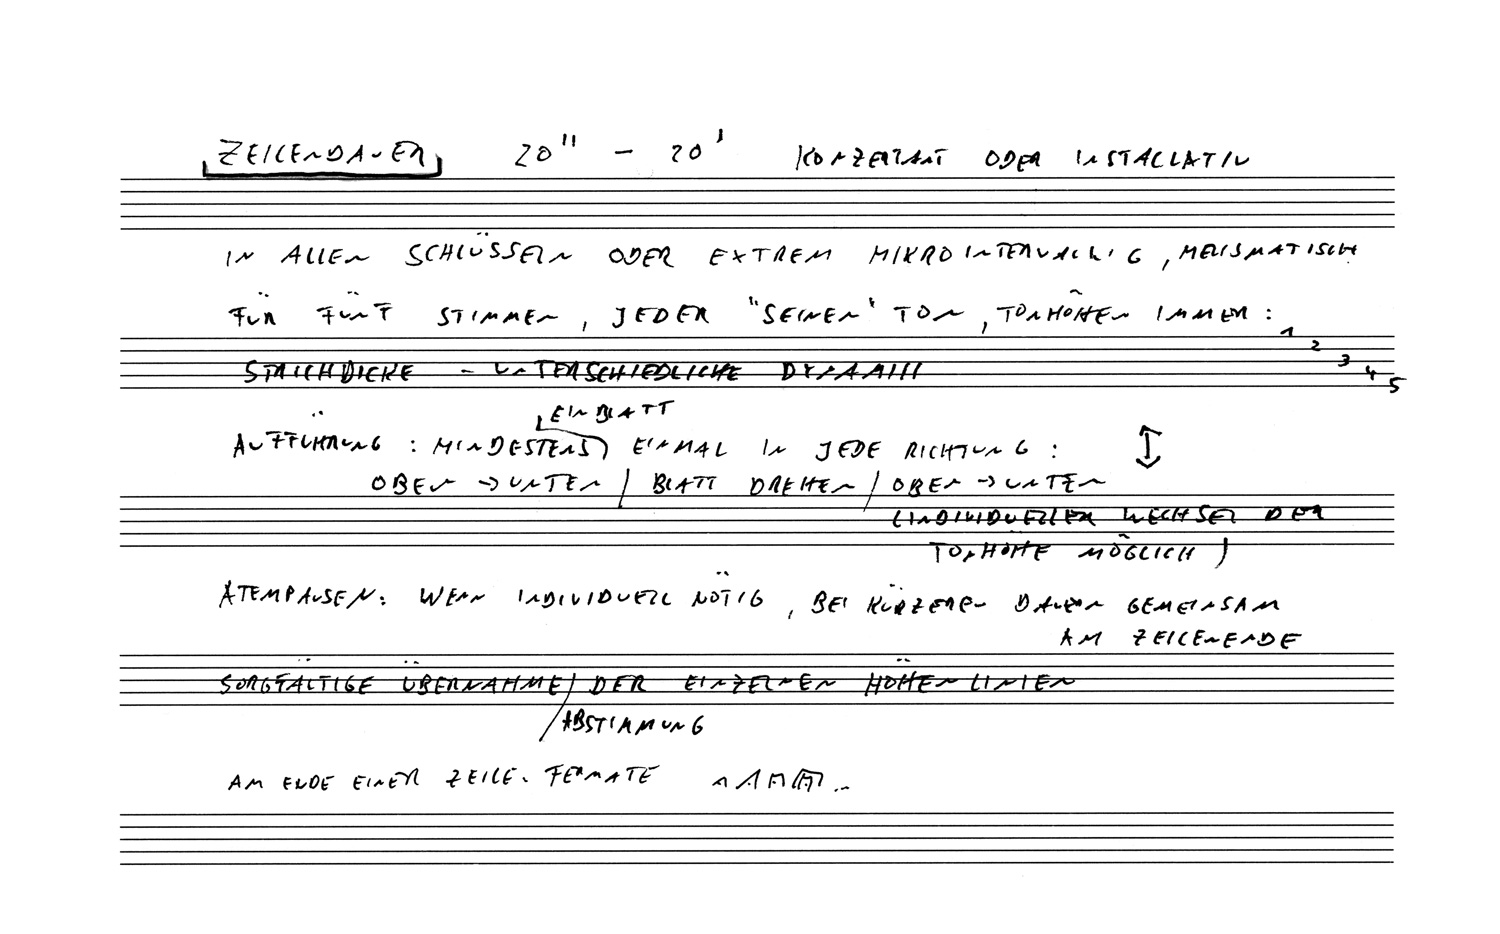 ZEILENDAUER 20" - 20' KONZERTANT ODER INSTALLATIV
IN ALLEN SCHLÜSSELN ODER EXTREM MIKROINTERVALLIG, MELISMATISCH
FÜR FÜNF STIMMEN, JEDER "SEINEN" TON, TONHÖHEN IMMER:
1 2 3 4 5
STRICHDICKE - UNTERSCHIEDLICHE DYNAMIK
EIN BLATT
AUFFÜHRUNG: MINDESTENS EINMAL IN JEDE RICHTUNG: ↕
OBEN → UNTEN / BLATT DREHEN / OBEN → UNTEN
(INDIVIDUELLER WECHSEL DER
TONHÖHE MÖGLICH)
ATEMPAUSEN: WENN INDIVIDUELL NÖTIG, BEI KÜRZEREN DAUERN GEMEINSAM
AM ZEILENENDE
SORGFÄLTIGE ÜBERNAHME / DER EINZELNEN HÖHENLINIEN
/ABSTIMMUNG
AM ENDE EINER ZEILE. FERMATE